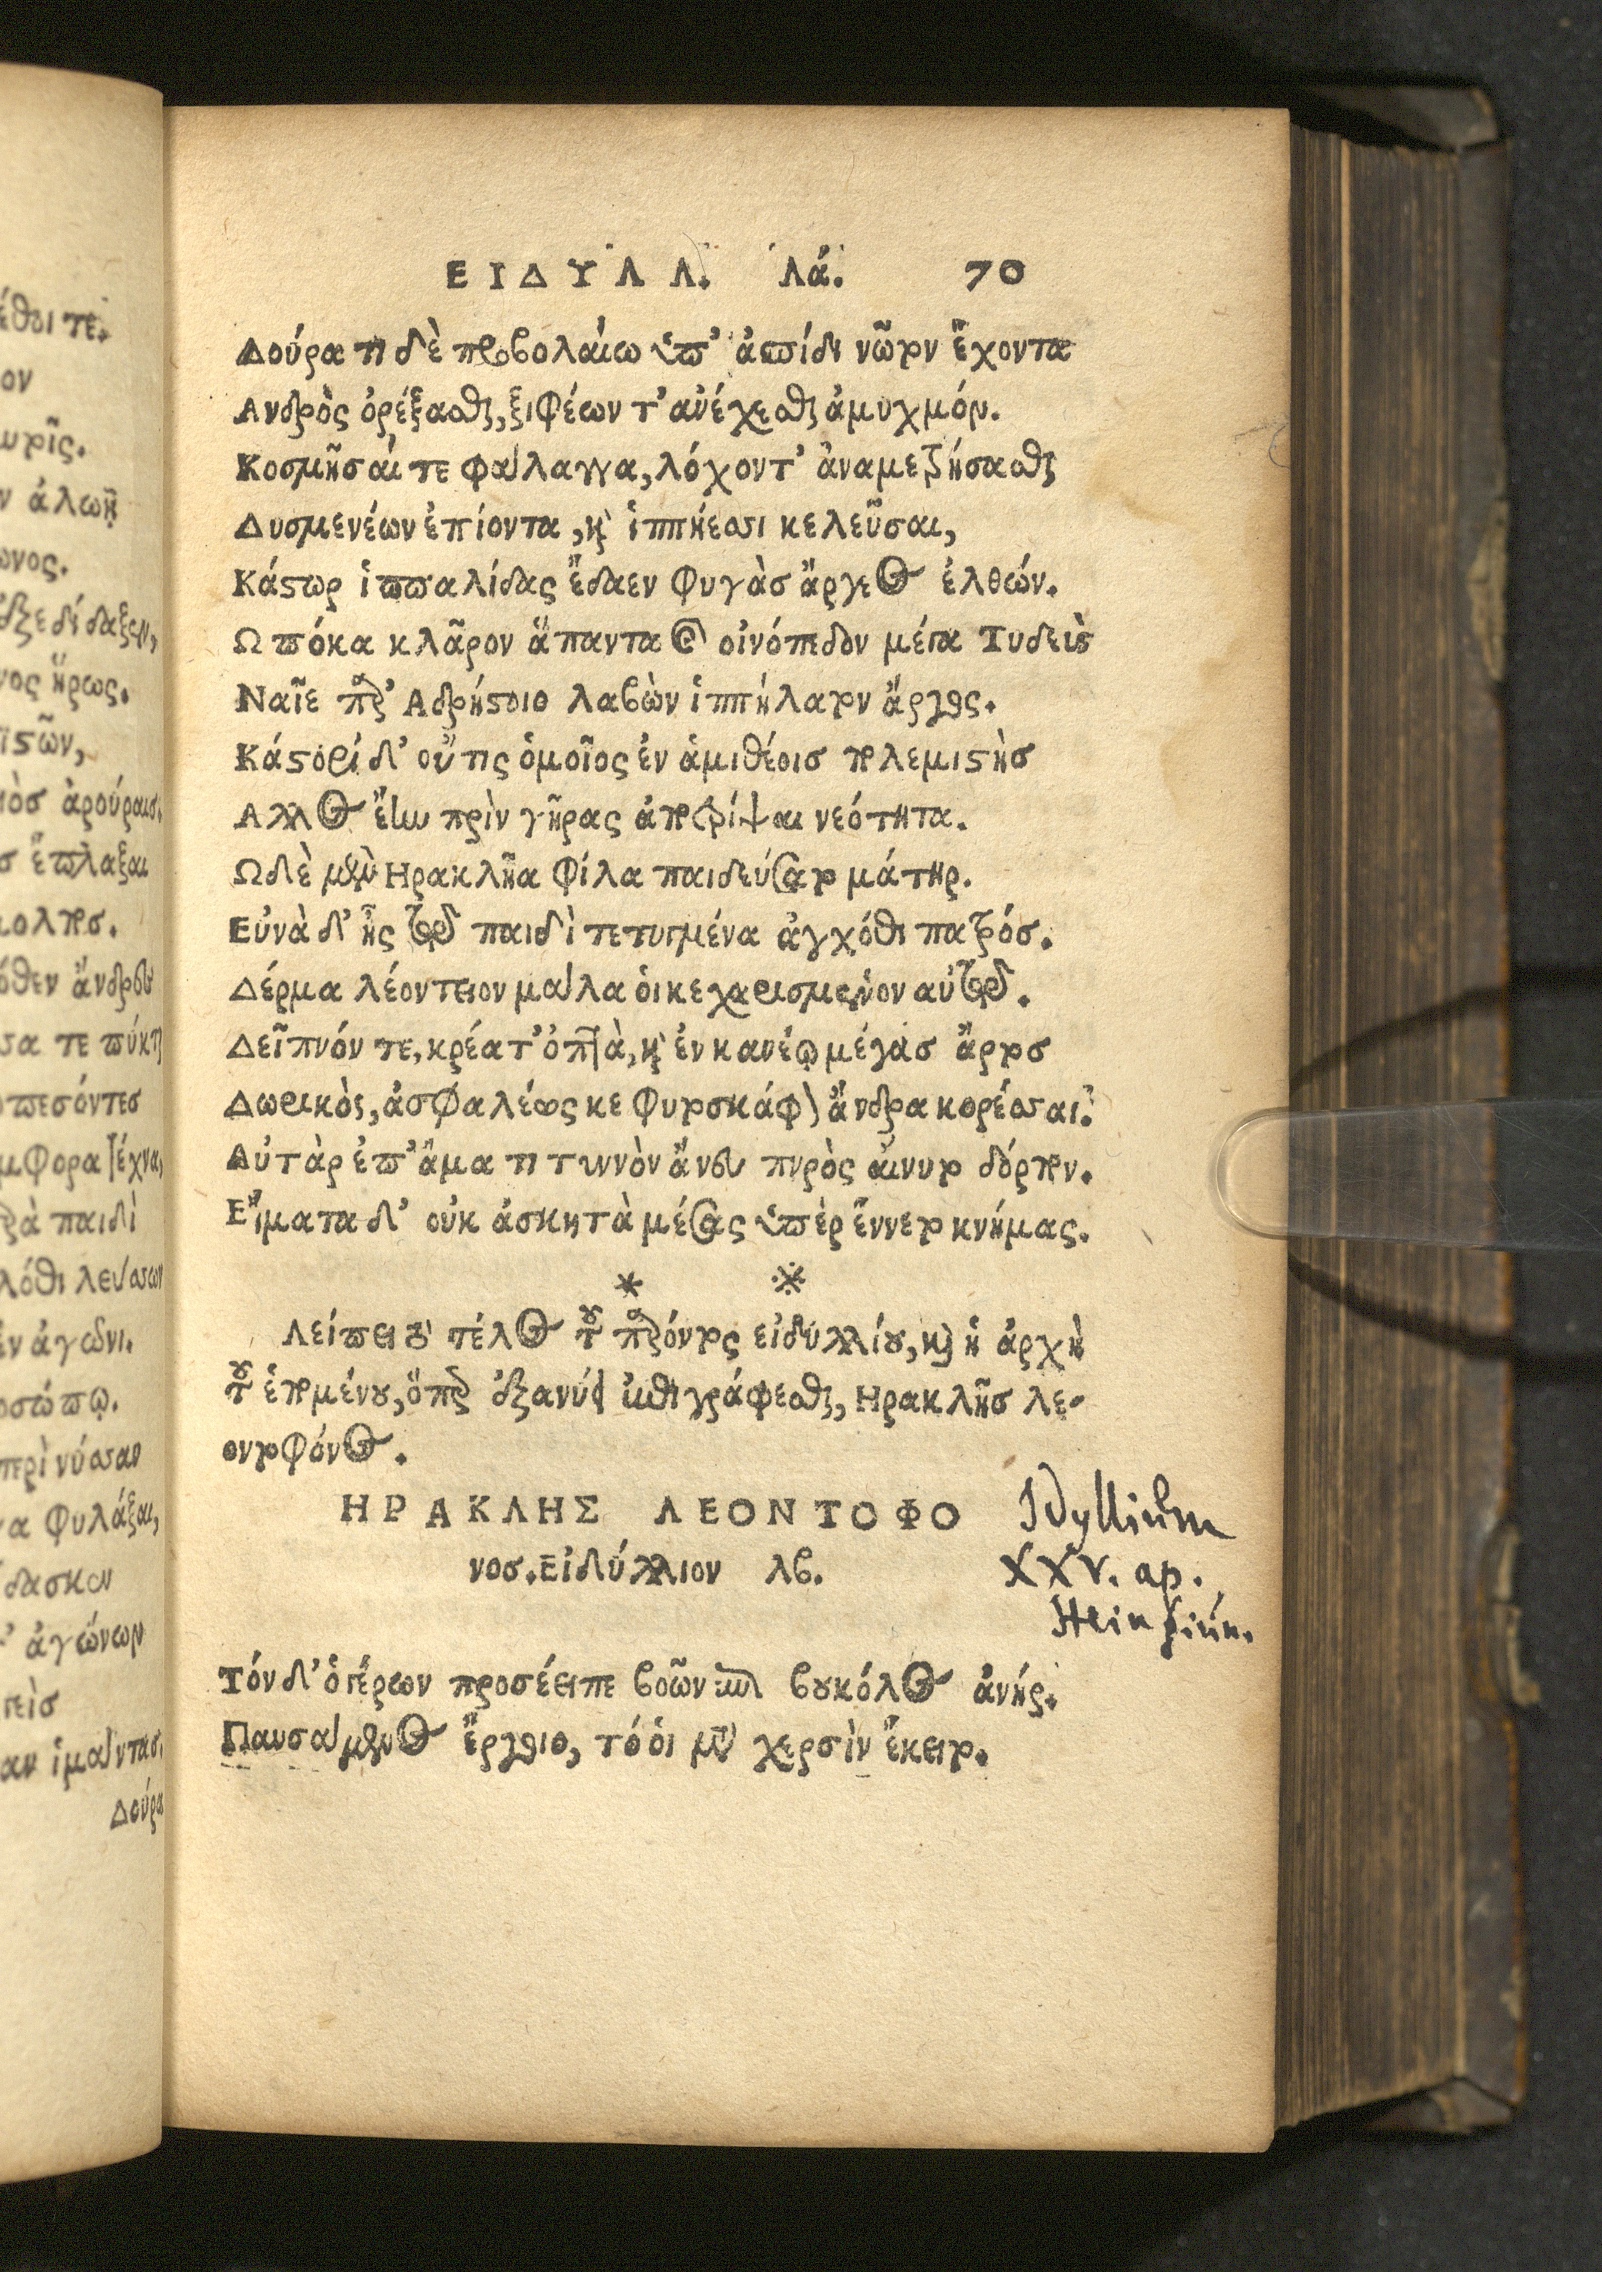 ΕΙΔΥΛΛ. λά. 70
Δούρατι δὲ προβολαίω ὑπ' ἀσπίδι νῶτον ἔχοντα
Ανδρὸς ὀρέξασθαι, ξιφέων τ' ἀνέχεσθαι ἀμυχμόν.
Κοσμῆσαί τε φάλαγγα, λόχον τ' ἀναμετρήσασθαι
Δυσμενέων ἐπίοντα, καὶ ἱππήεσσι κελεῦσαι,
Κάστωρ ἱππαλίδας ἔδαεν φυγὰσ ἄργεος ἐλθών.
Ω πόκα κλᾶρον ἅπαντα καὶ οἰνόπεδον μέγα Τυδεὺς
Ναῖε παρ' Αδρήστοιο λαβὼν ἱππήλατον ἄργος.
Κάστορι δ' οὔτις ὁμοῖος ἐν ἁμιθέοισ πολεμιστὴσ
Αλλος ἔην πρὶν γῆρας ἀποτρίψαι νεότητα.
Ωδὲ μὲν Ηρακλῆα φίλα παιδεύσατο μάτηρ.
Εὐνὰ δ' ἦς τῷ παιδὶ τετυγμένα ἀγχόθι πατρόσ.
Δέρμα λέοντειον μάλα οἱ κεχαρισμένον αὐτῷ.
Δεῖπνόν τε, κρέατ' ὀπτὰ, καὶ ἐν κανέῳ μέγασ ἄρτοσ
Δωρικὸς, ἀσφαλέως κε φυτοσκάφον ἄνδρα κορέσσαι.
Αὐτὰρ ἐπ' ἄματι τυννὸν ἄνευ πυρὸς αἴνυτο δόρπον.
Εἵματα δ' οὐκ ἀσκητὰ μέσας ὑπὲρ ἕννετο κνήμας.
* ※
Λείπει τὸ τέλος τοῦ παρόντος εἰδυλλίου, καὶ ἡ ἀρχὴ
τοῦ ἑπομένου, ὅπερ ἐξανύει ἐπιγράφεσθαι, Ηρακλῆσ λε-
οντοφόνος.
ΗΡΑΚΛΗΣ ΛΕΟΝΤΟΦΟ
νοσ. Εἰδύλλιον λβ.
Idyllium
XXV. ap.
Heinsium.
Τόν δ' ὁ γέρων προσέειπε βοῶν ἐπὶ βουκόλος ἀνήρ.
Παυσάμενος ἔργοιο, τό οἱ μετὰ χερσὶν ἔκειτο.